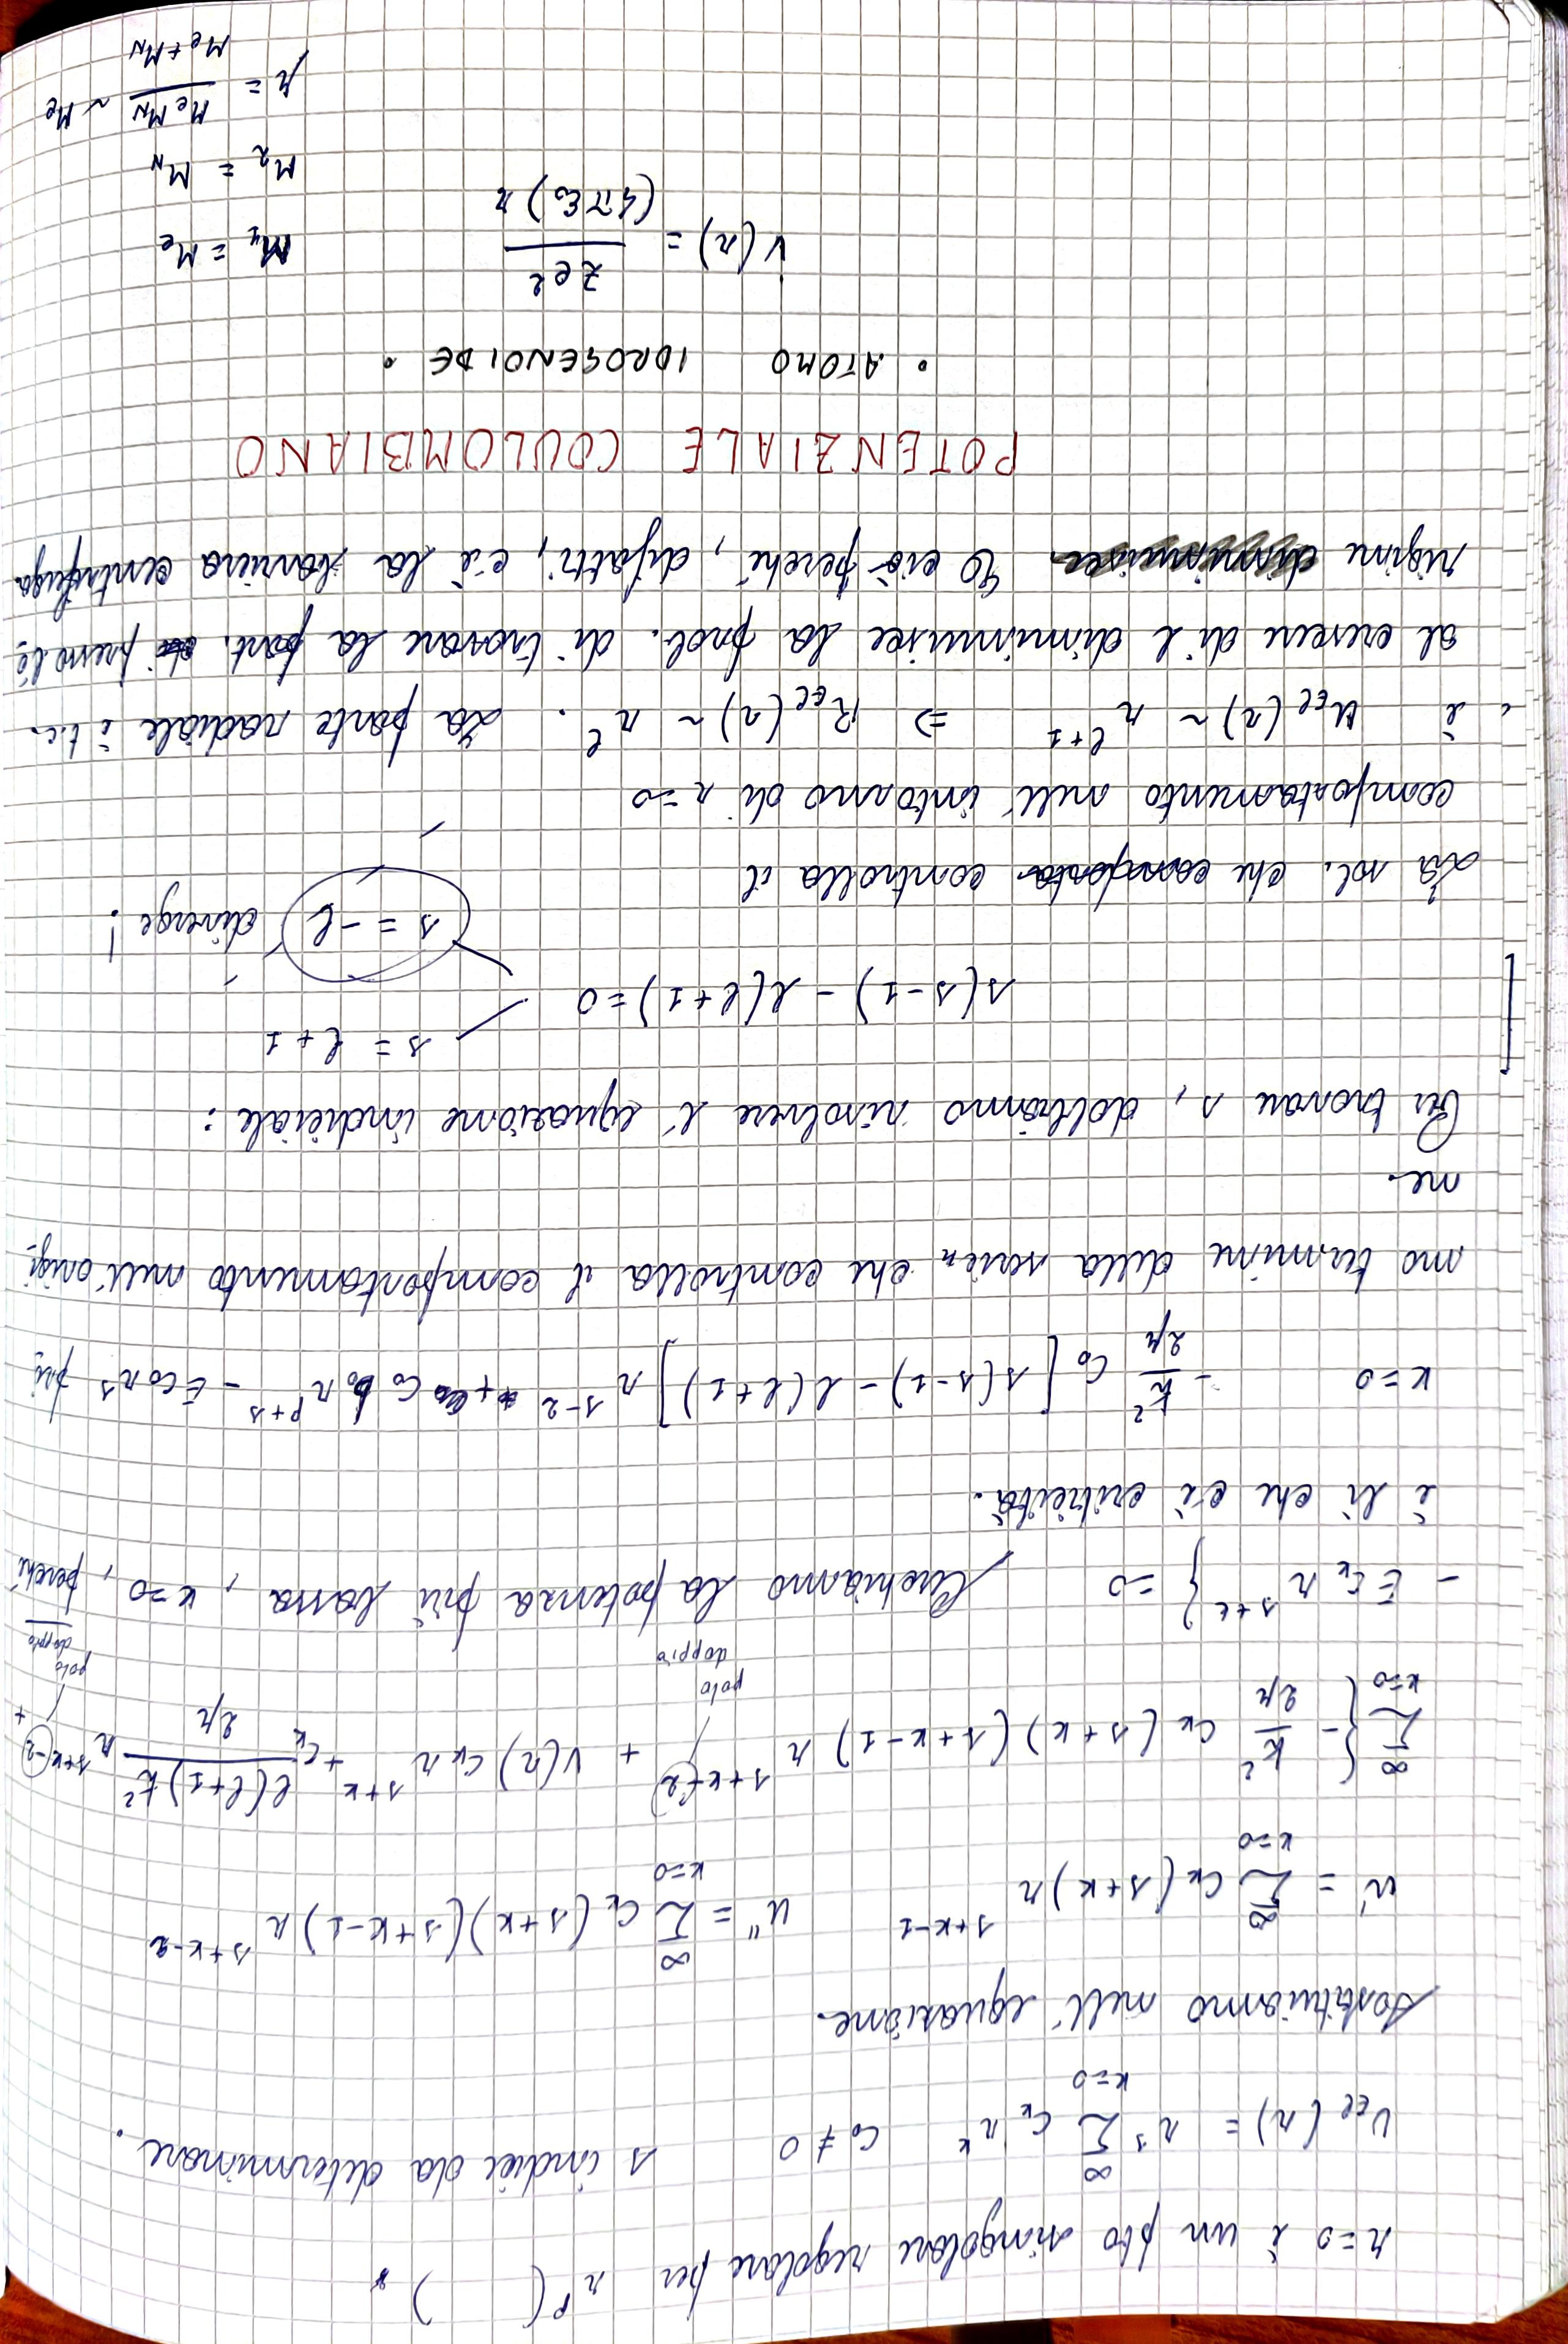 r=0 è un pto singolare regolare per r^p ( )
U_El(r) = r^s ∑_{k=0}^∞ c_k r^k c_0 ≠ 0 s indici da determinare.
Sostituiamo nell'equazione.
u' = ∑_{k=0}^∞ c_k (s+k) r^{s+k-1} u'' = ∑_{k=0}^∞ c_k (s+k)(s+k-1) r^{s+k-2}
∑_{k=0}^∞ { - ħ²/2μ c_k (s+k)(s+k-1) r^{s+k-2} + V(r) c_k r^{s+k} + c_k l(l+1)ħ²/2μ r^{s+k-2} +
polo doppio polo doppio
- E c_k r^{s+k} } = 0 Cerchiamo la potenza più bassa, k=0, perché
è lì che c'è criticità.
k=0 - ħ²/2μ c_0 [s(s-1) - l(l+1)] r^{s-2} + c_0 b_0 r^{p+s} - E c_0 r^s pri
mo termine della serie, che controlla il comportamento nell'origi-
ne.
Per trovare s, dobbiamo risolvere l'equazione indiciale:
s(s-1) - l(l+1) = 0
s = l+1
s = -l diverge!
La sol. che controlla il
comportamento nell'intorno di r=0
è u_El(r) ~ r^{l+1} ⇒ R_El(r) ~ r^l. La parte radiale è t.c.
al crescere di l diminuisce la prob. di trovare la part.
ciò perché, difatti, c'è la barriera centrifuga
POTENZIALE COULOMBIANO
• ATOMO IDROGENOIDE •
V(r) = Ze²/(4πε_0) r M_1 = M_e
M_2 = M_N
μ = M_e M_N / M_e + M_N ~ M_e